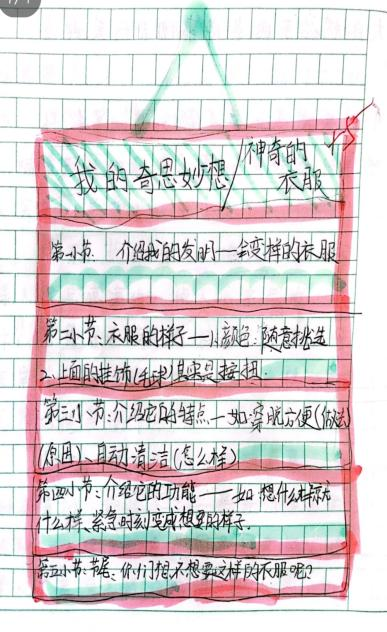 我的奇思妙想/神奇的
衣服
第一小节: 介绍我的发明——会变样的衣服
第二小节:衣服的样子——1、颜色:随意挑选
2、上面的挂饰(毛球)其实是按扭.
第三小节:介绍它的特点——如:穿脱方便(做法)
(原因)、自动清洁(怎么样)
第四小节:介绍它的功能——如 想什么样就
什么样、紧急时刻变成想要的样子.
第五小节:节尾:你们想不想要这样的衣服呢?